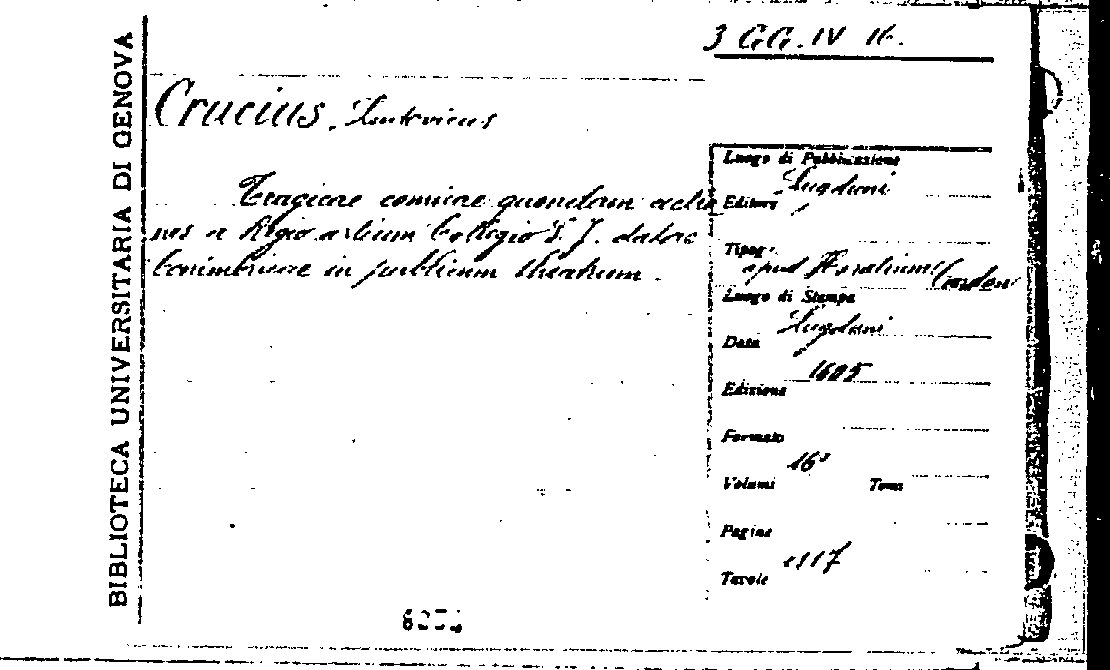 3 GG. IV 16.
BIBLIOTECA UNIVERSITARIA DI GENOVA
Crucius, Ludovicus
Tragicae comicae quaedam actio
nes a Regio artium Collegio S. J. datae
Conimbricae in publicum theatrum.
Luogo di Pubblicazione
Lugduni
Editore
Tipogr.
apud Horatium Cardon
Luogo di Stampa
Lugduni
Data
1605
Edizione
Formato
16°
Volumi Tomi
Pagine
Tavole